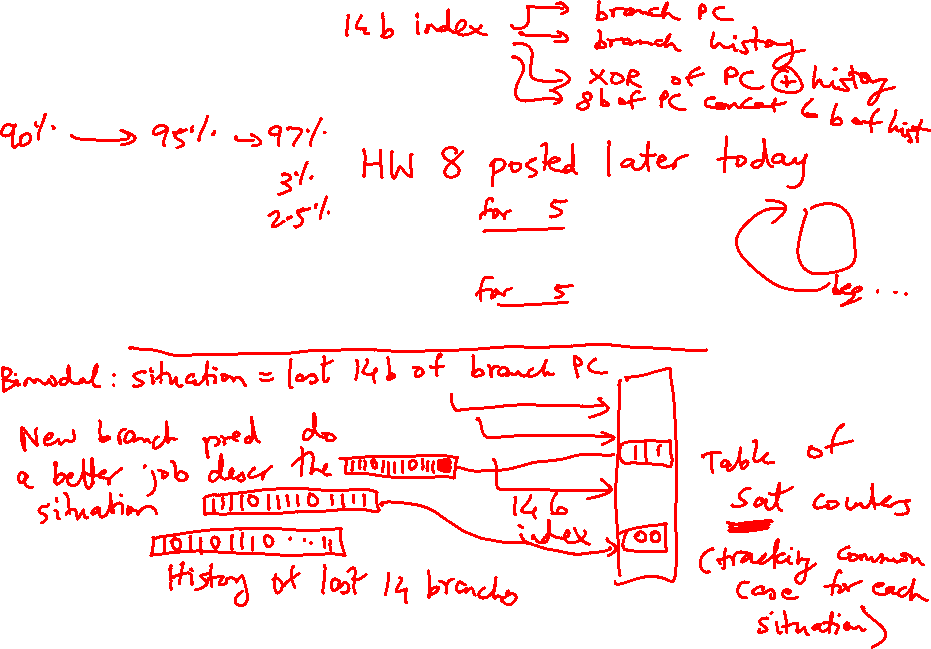 14b index → branch PC
→ branch history
→ XOR of PC ⊕ history
→ 8b of PC concat 6b of hist
90% → 95% → 97%
3%
2.5%
HW 8 posted later today
for 5
for 5
beq ...
Bimodal: situation = last 14b of branch PC
New branch pred do
a better job descr the
situation
11101111011
11101111011111
10110 1110 ... 11
History of last 14 branches
14b
index
111
00
Table of
Sat counters
(tracking common
case for each
situation)